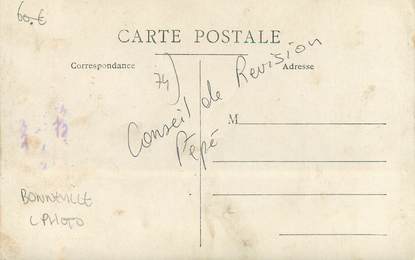 60.€
CARTE POSTALE
Correspondance
Adresse
74)
Conseil de Revision
Pépé
M
BONNEVILLE
C PHOTO